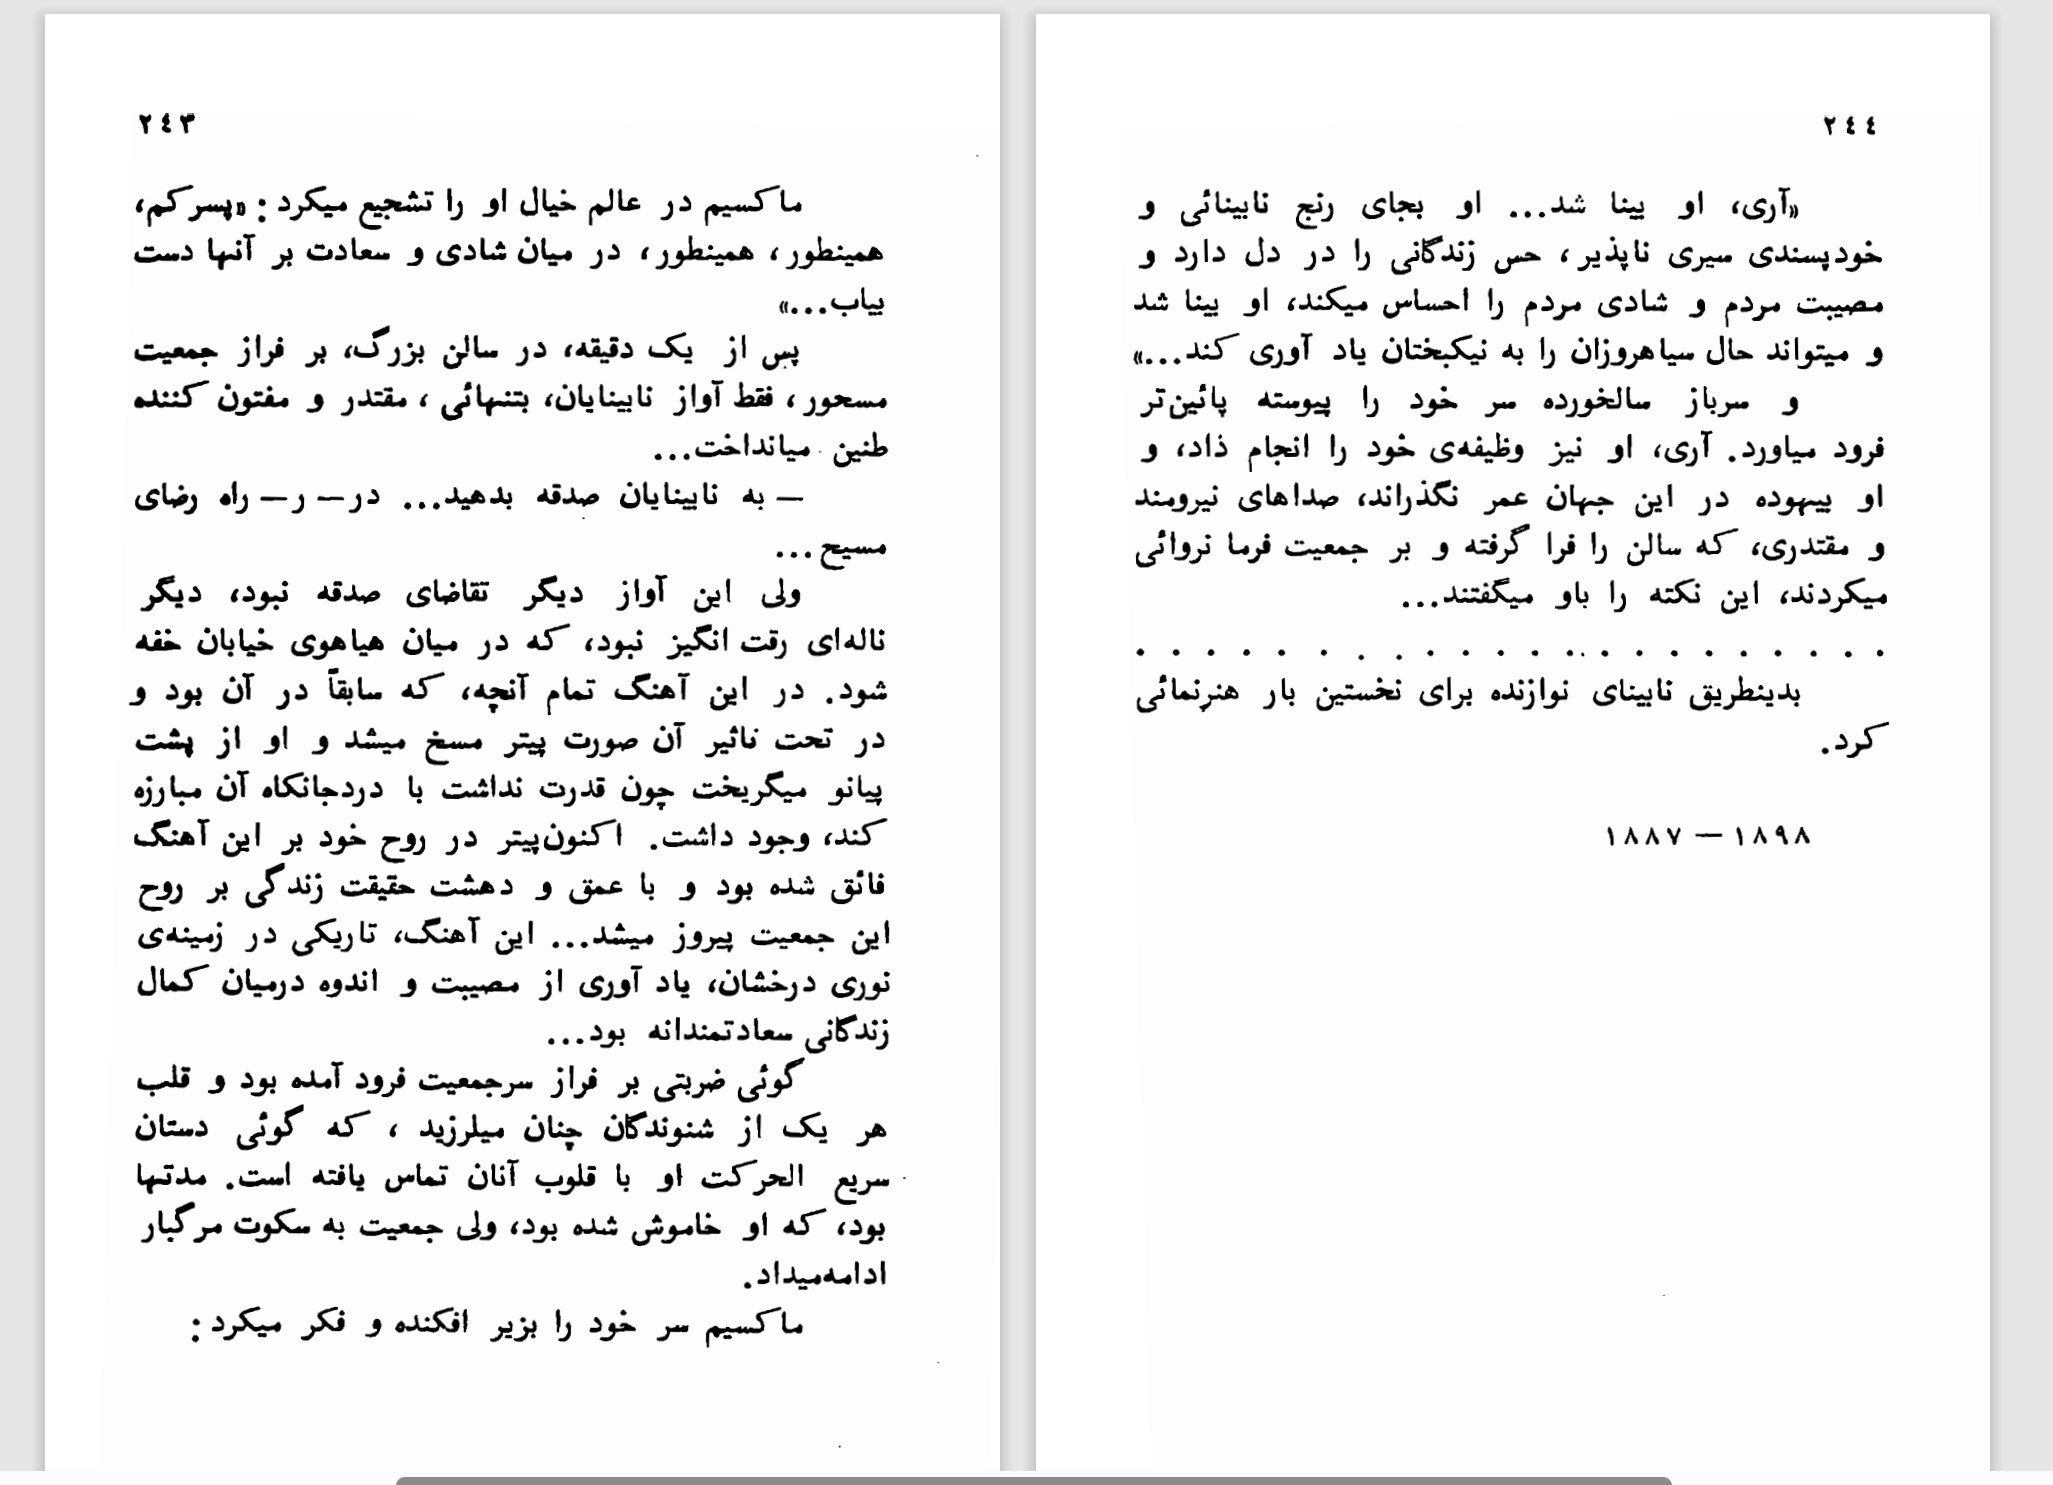 ٢٤٣
ماکسیم در عالم خیال او را تشجیع میکرد: «پسرکم،
همینطور، همینطور، در میان شادی و سعادت بر آنها دست
بیاب...»
پس از یک دقیقه، در سالن بزرگ، بر فراز جمعیت
مسحور، فقط آواز نابینایان، بتنهائی، مقتدر و مفتون کننده
طنین میانداخت...
— به نابینایان صدقه بدهید... در — ر — راه رضای
مسیح...
ولی این آواز دیگر تقاضای صدقه نبود، دیگر
ناله‌ای رقت انگیز نبود، که در میان هیاهوی خیابان خفه
شود. در این آهنگ تمام آنچه، که سابقاً در آن بود و
در تحت تاثیر آن صورت پیتر مسخ میشد و او از پشت
پیانو میگریخت چون قدرت نداشت با دردجانکاه آن مبارزه
کند، وجود داشت. اکنون‌پیتر در روح خود بر این آهنگ
فائق شده بود و با عمق و دهشت حقیقت زندگی بر روح
این جمعیت پیروز میشد... این آهنگ، تاریکی در زمینه‌ی
نوری درخشان، یاد آوری از مصیبت و اندوه درمیان کمال
زندگانی سعادتمندانه بود...
گوئی ضربتی بر فراز سرجمعیت فرود آمده بود و قلب
هر یک از شنوندگان چنان میلرزید، که گوئی دستان
سریع الحرکت او با قلوب آنان تماس یافته است. مدتها
بود، که او خاموش شده بود، ولی جمعیت به سکوت مرگبار
ادامه‌میداد.
ماکسیم سر خود را بزیر افکنده و فکر میکرد:
٢٤٤
«آری، او بینا شد... او بجای رنج نابینائی و
خودپسندی سیری ناپذیر، حس زندگانی را در دل دارد و
مصیبت مردم و شادی مردم را احساس میکند، او بینا شد
و میتواند حال سیاهروزان را به نیکبختان یاد آوری کند...»
و سرباز سالخورده سر خود را پیوسته پائین‌تر
فرود میاورد. آری، او نیز وظیفه‌ی خود را انجام ذاد، و
او بیهوده در این جهان عمر نگذراند، صداهای نیرومند
و مقتدری، که سالن را فرا گرفته و بر جمعیت فرما نروائی
میکردند، این نکته را باو میگفتند...
. . . . . . . . . . . . . . . . . . . . .
بدینطریق نابینای نوازنده برای نخستین بار هنرنمائی
کرد.
١٨٩٨ — ١٨٨٧